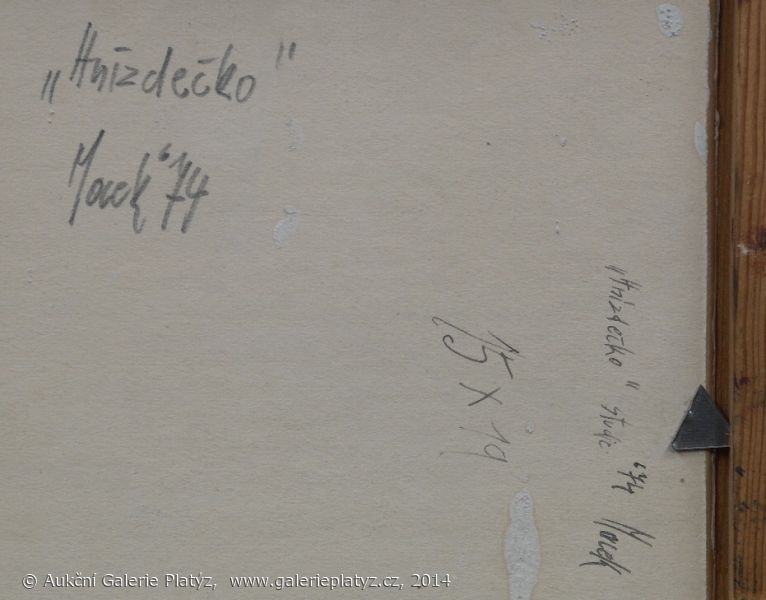 „Hnízdečko"
Marek '74
15 x 19
„Hnízdečko" studie '74 Marek
© Aukční Galerie Platýz, www.galerieplatyz.cz, 2014